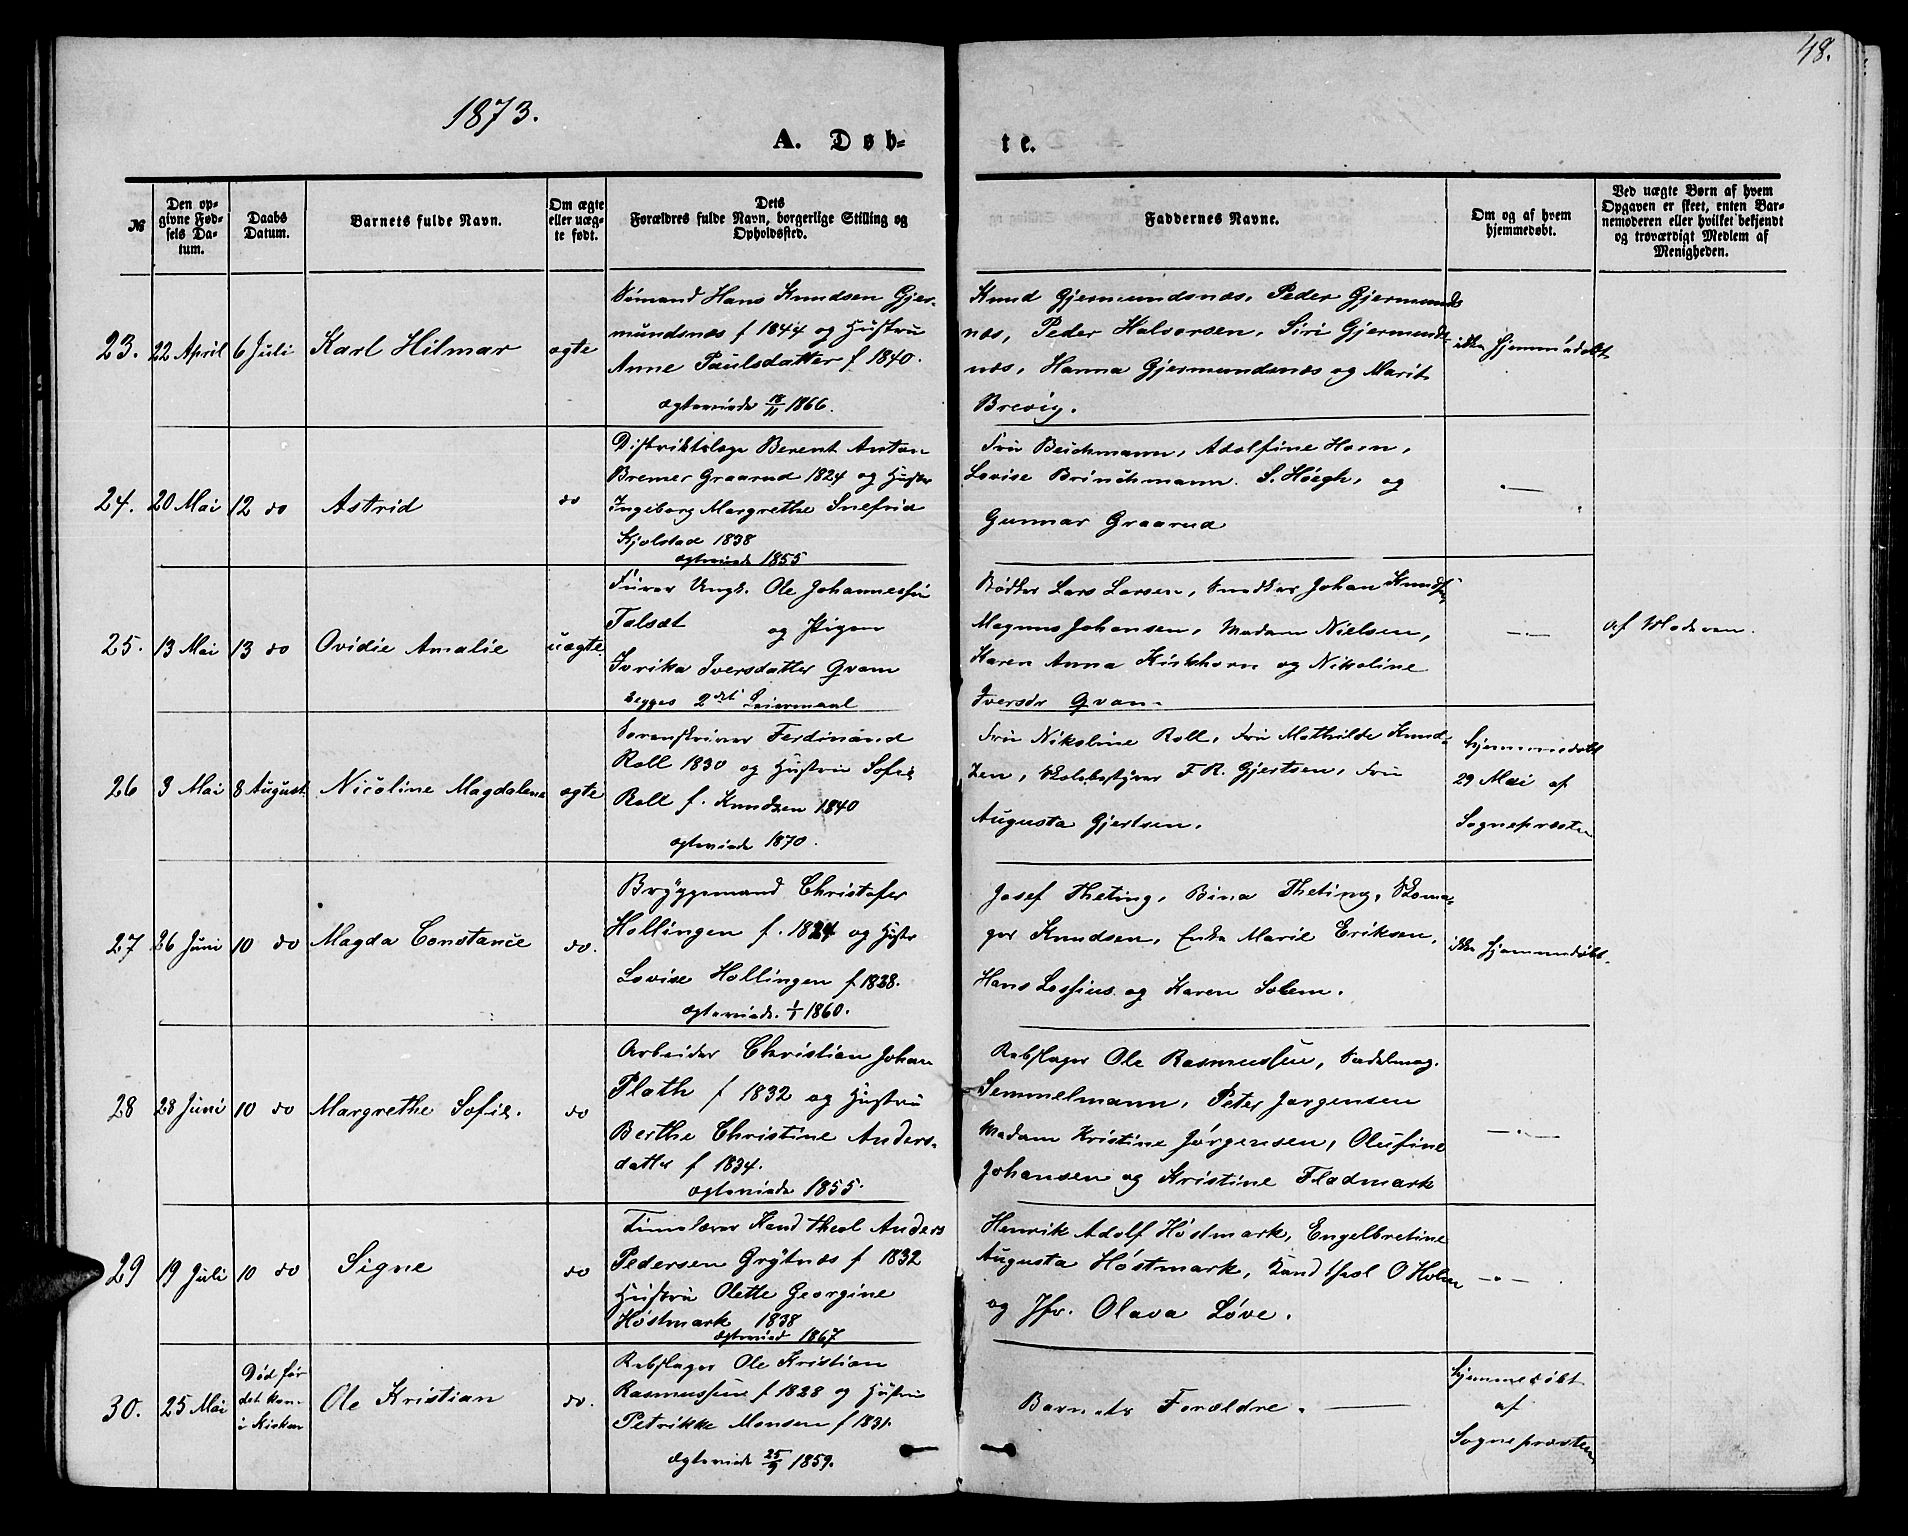 48.
1873.
A. Døb-
te.
№
Den op-
givne Fød-
sels Da-
tum.
Daabs
Datum.
Barnets fulde Navn.
Om ægte
eller uæg-
te født.
Dets
Forældres fulde Navn, borgerlige Stilling og
Opholdssted.
Faddernes Navne.
Om og af hvem
hjemmedøbt.
Ved uægte Børn af hvem
Opgaven er skeet, enten Bar-
nemoderen eller hvilket bekjendt
og troværdigt Medlem af
Menigheden.
23. 22 April 6 Juli Karl Hilmar ægte
Sømand Hans Knudsen Gjer-
mundsnæs f 1844 og Hustru
Anne Paulsdatter f 1840.
ægteviede 18/11 1866.
Knud Gjermundsnæs, Peder Gjermunds
næs, Peder Halvorsen, Siri Gjermunds-
næs, Hanna Gjermundsnæs og Marit
Brevig.
ikke hjemmedøbt
24. 20 Mai 12 do Astrid do
Distriktslæge Berent Anton
Bremer Graarud 1824 og Hustru
Ingeborg Margrethe Snefrid
Kjolstad 1838
ægteviede 1855
Fru Beichmann, Adolfine Horn,
Lovise Brinchmann. S. Høegh, og
Gunnar Graarud
25. 13 Mai 13 do Ovidie Amalie uægte.
Furer Ungk. Ole Johannessen
Talsæt og Pigen
Ivrika Iversdatter Qvam
begges 2det Leiermaal
Bødker Lars Larsen, Snedker Johan Knudsen,
Magnus Johansen, Madam Nielsen,
Karen Anna Kirkhorn og Nikoline
Iversdr Qvam.
af Moderen.
26 3 Mai 8 August Nicoline Magdalene ægte
Sorenskriver Ferdinand
Roll 1830 og Hustru Sofie
Roll f. Knudzen 1840
ægteviede 1870.
Fru Nikoline Roll, Fru Mathilde Knud-
zen, Skolebestyrer F. R. Gjertsen, Fru
Augusta Gjertsen.
hjemmedøbt
29 Mai af
Sognepræsten
27 26 Juni 10 do Magda Constance do.
Bryggemand Christofer
Hollingen f. 1824 og Hustr
Lovise Hollingen f 1828.
ægteviede. 1/1 1860.
Josef Theting, Bina Theting, Skoma-
ger Knudsen, Enke Marie Eriksen,
Hans Lossius og Karen Solem.
ikke hjemmedøbt.
28 28 Juni 10 do Margrethe Sofie. do
Arbeider Christian Johan
Plath f 1832 og Hustru
Berthe Christine Anders-
datter f 1834.
ægteviede 1855.
Rebslager Ole Rasmussen, Sadelmag.
Semmelmann, Peter Jørgensen
Madam Kristine Jørgensen, Olufine
Johansen og Kristine Fladmark
29 19 Juli 10 do Signe do
Timelærer Kand theol Anders
Pedersen Grytnæs f 1832
Hustru Olette Georgine
Høstmark 1838
ægteviede 1867
Henrik Adolf Høstmark, Engelbretine
Augusta Høstmark, Kand theol O Holm
og Jfr. Olava Løve.
30. 25 Mai Død før
det kom
i Kirken
Ole Kristian do.
Rebslager Ole Kristian
Rasmussen f 1828 og Hustru
Petrikke Monsen f 1831.
ægteviede 25/9 1859.
Barnets Forældre.
hjemmedøbt
af
Sognepræsten.